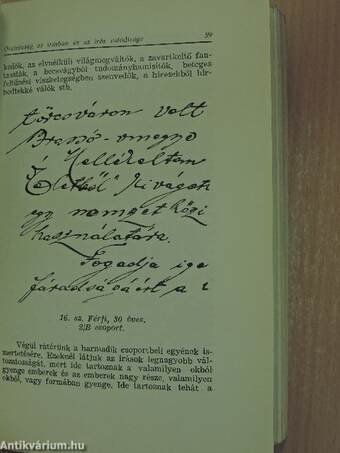 Őszinteség az írásban és az írás valódisága 59
kozók, az elvnélküli világmegváltók, a zavarkeltő fan-
taszták, a becsvágyból tudományhamisítók, beteges
feltűnési viszketegségben szenvedők, a hírezekből hír-
hedtekké válók stb.
törcsváron volt
Brassó-vmegye
Mellékeltem
Életből" kivágott
egy nemzet közi
használatára.
Fogadja
fáradságáért a
16. sz. Férfi, 30 éves,
2/B csoport.
Végül rátérünk a harmadik csoportbeli egyének is-
mertetésére. Ezeknél látjuk az írások legnagyobb vál-
tozatosságát, mert ide tartoznak a valamilyen okból
gyenge emberek és az emberek nagy része, valamilyen
okból, vagy formában gyenge. Ide tartoznak tehát a
Antikvárium.hu